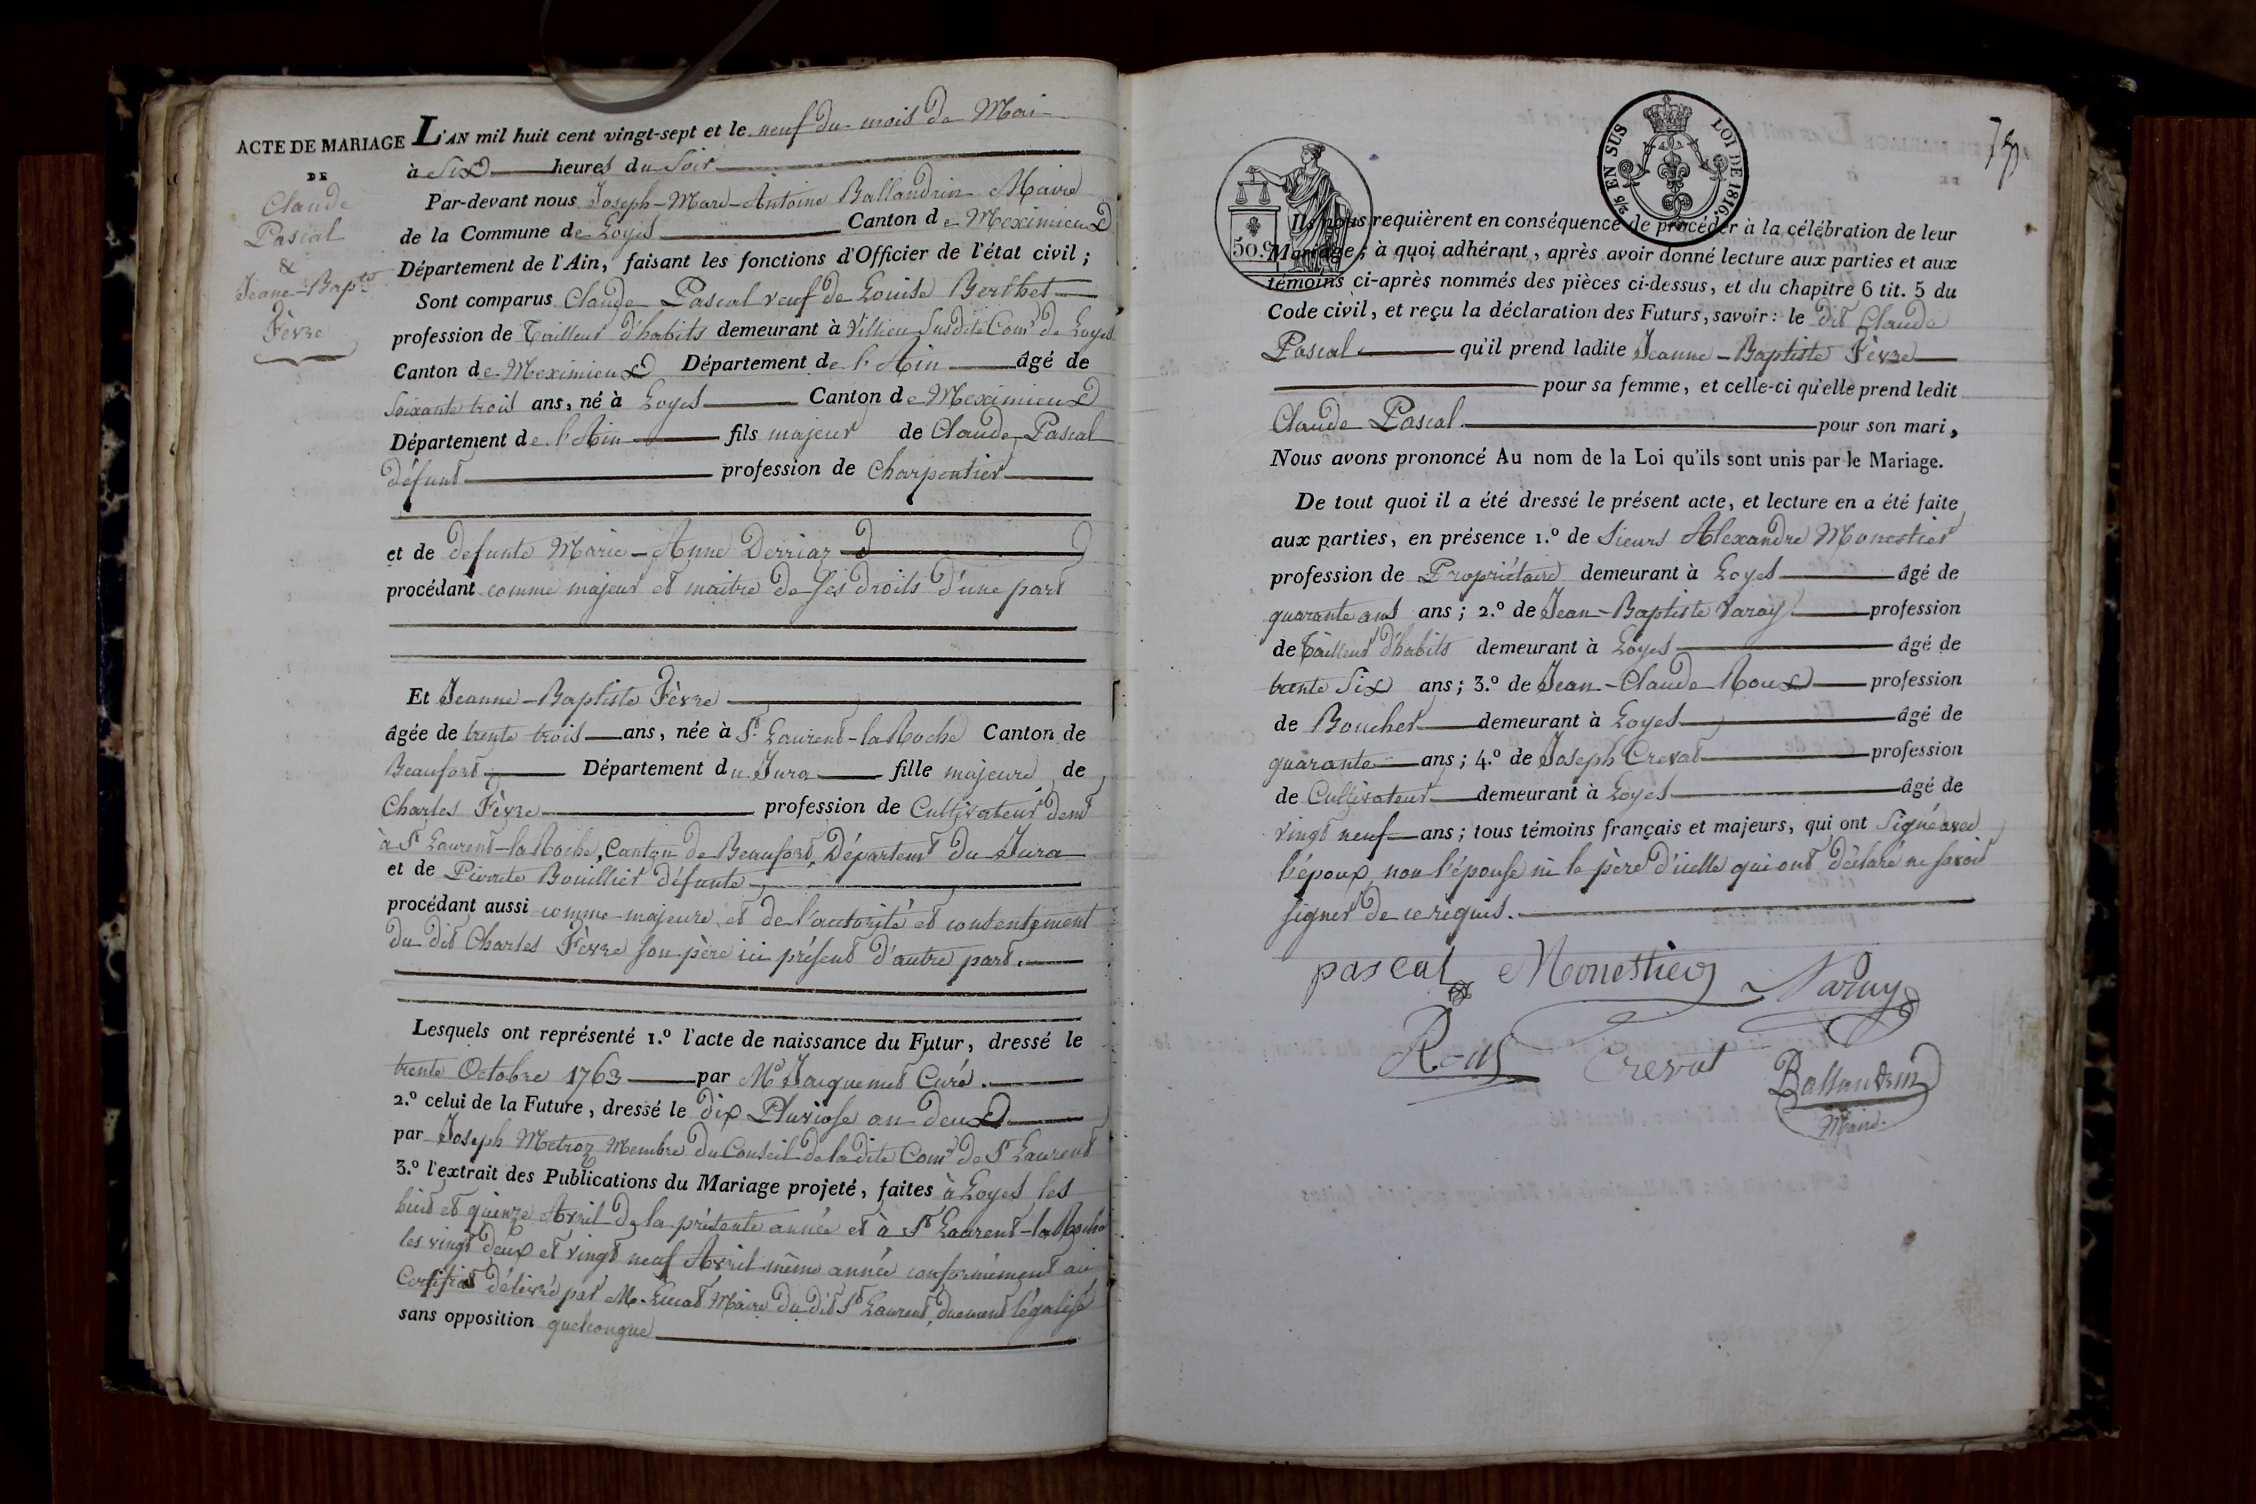 ACTE DE MARIAGE
DE
Claude
Pascal
&
Jeanne-Bap.te
Fèvre
L'AN mil huit cent vingt-sept et le neuf du mois de Mai
à Six heures du Soir
Par-devant nous Joseph-Marie-Antoine Ballandrin Maire
de la Commune de Loyes Canton de Meximieux
Département de l'Ain, faisant les fonctions d'Officier de l'état civil;
Sont comparus Claude Pascal veuf de Louise Berthet
profession de Tailleur d'habits demeurant à Villieu Susdite Com.e de Loyes
Canton de Meximieux Département de l'Ain âgé de
Soixante trois ans, né à Loyes Canton de Meximieux
Département de l'Ain fils majeur de Claude Pascal
défunt profession de Charpentier
et de defunte Marie-Anne Derriaz
procédant comme majeur et maitre de ses droits d'une part
Et Jeanne-Baptiste Fèvre
âgée de trente trois ans, née à St. Laurent-la Roche Canton de
Beaufort Département du Jura fille majeure de
Charles Fèvre profession de Cultivateur demt
à St Laurent-la Roche, Canton de Beaufort, Département du Jura
et de Pierrette Bouillier défunte
procédant aussi comme majeure et de l'autorité et consentement
du dit Charles Fèvre son père ici présent d'autre part.
Lesquels ont représenté 1.º l'acte de naissance du Futur, dressé le
trente Octobre 1763 par Mr Jacquemet Curé.
2.º celui de la Future, dressé le dix Pluviose an deux
par Joseph Metroz Membre du Conseil de ladite Com.e de St Laurent
3.º l'extrait des Publications du Mariage projeté, faites à Loyes les
huit et quinze Avril de la présente année et à St Laurent-la Roche
les vingt deux et vingt neuf Avril même année conformément au
Certificat délivré par Mr. Maire du dit St Laurent, duement légalisé
sans opposition quelconque
50.C
5/2 EN SUS LOI DE 1816.
Ils nous requièrent en conséquence de procéder à la célébration de leur
Mariage; à quoi adhérant, après avoir donné lecture aux parties et aux
témoins ci-après nommés des pièces ci-dessus, et du chapitre 6 tit. 5 du
Code civil, et reçu la déclaration des Futurs, savoir: le dit Claude
Pascal qu'il prend ladite Jeanne-Baptiste Fèvre
pour sa femme, et celle-ci qu'elle prend ledit
Claude Pascal pour son mari,
Nous avons prononcé Au nom de la Loi qu'ils sont unis par le Mariage.
De tout quoi il a été dressé le présent acte, et lecture en a été faite
aux parties, en présence 1.º de Sieurs Alexandre Monestier
profession de Propriétaire demeurant à Loyes âgé de
quarante ans ans; 2.º de Jean-Baptiste Varay profession
de Tailleur d'habits demeurant à Loyes âgé de
trente Six ans; 3.º de Jean-Claude Roux profession
de Boucher demeurant à Loyes âgé de
quarante ans; 4.º de Joseph Crevat profession
de Cultivateur demeurant à Loyes âgé de
vingt neuf ans; tous témoins français et majeurs, qui ont Signé avec
l'époux, non l'épouse ni le père d'icelle qui ont déclaré ne savoir
signer de ce requis.
pascal Monestier Varay
Roux Crevat Ballandrin
Maire.